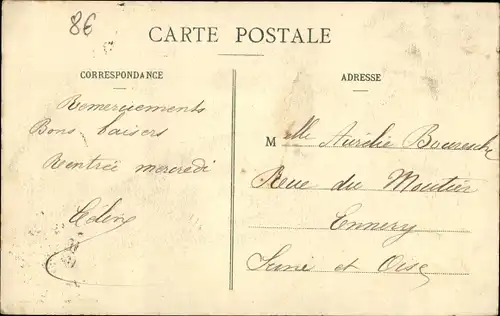 86
CARTE POSTALE
CORRESPONDANCE
Remerciements
Bons baisers
Rentrée mercredi
ADRESSE
Melle Aurélie
Rue du Moutier
Ennery
Seine et Oise